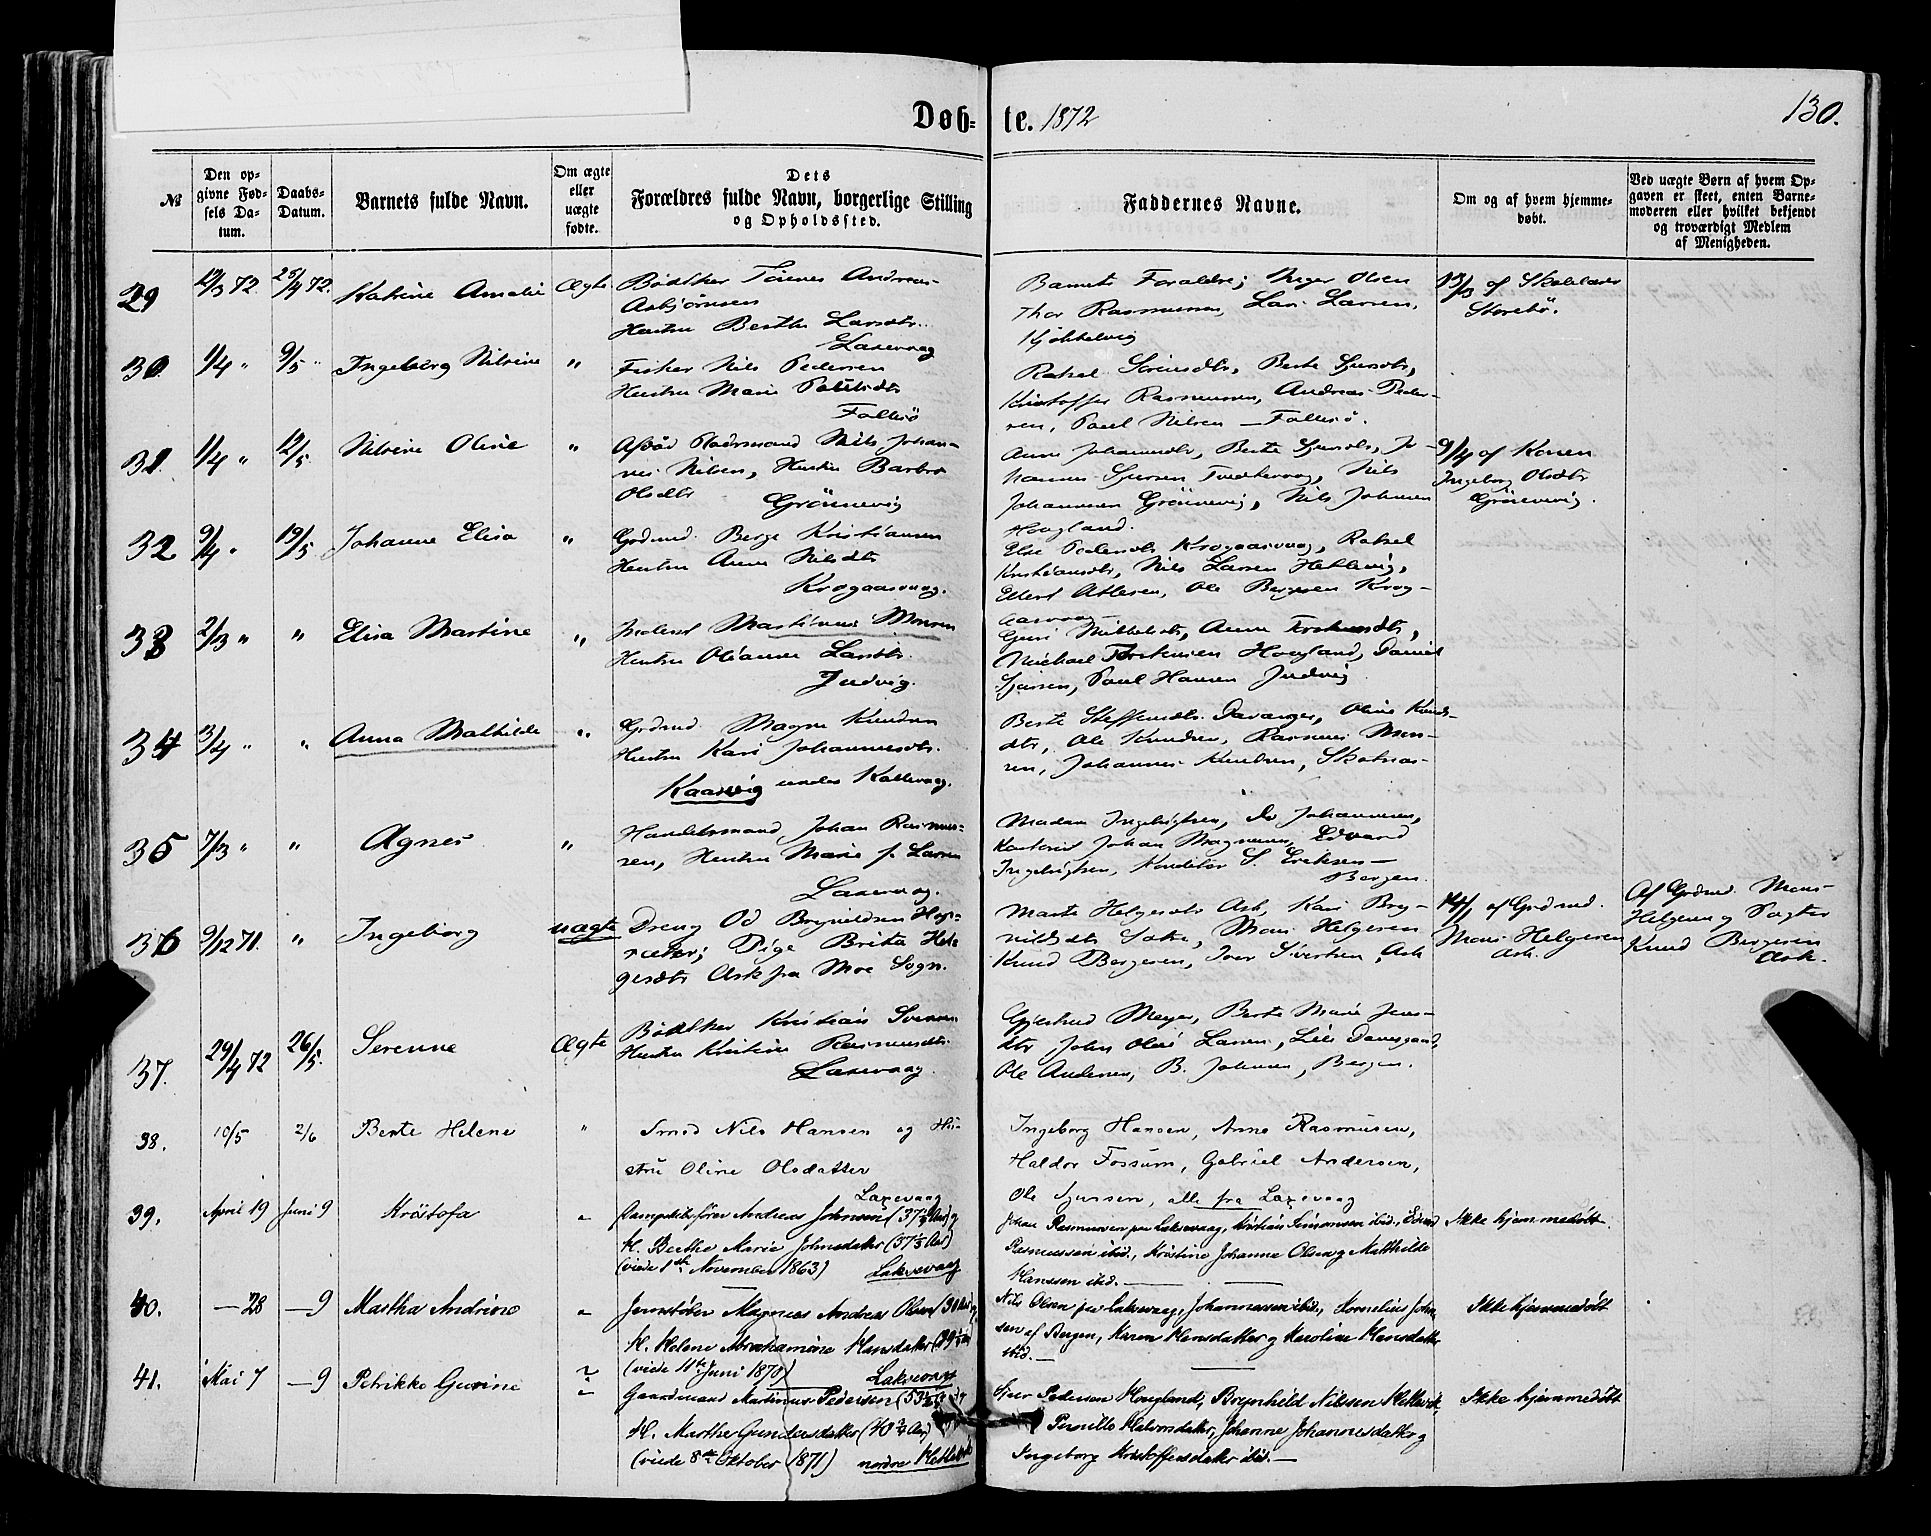 Døb-te. 1872
130.
№
Den op-
givne Fød-
sels Da-
tum.
Daabs-
Datum.
Barnets fulde Navn.
Om ægte
eller
uægte
fødte.
Dets
Forældres fulde Navn, borgerlige Stilling
og Opholdssted.
Faddernes Navne.
Om og af hvem hjemme-
døbt.
Ved uægte Børn af hvem Op-
gaven er skeet, enten Barne-
moderen eller hvilket bekjendt
og troværdigt Medlem
af Menigheden.
29
12/3 72.
25/4 72.
Katrine Amalie
Ægte
Bødtker Andreas
Asbjørnsen
Hustru Berthe Larsdtr.
Laxevaag
Barnets Forældre, Olsen
Thor Rasmussen, Lars Larsen,
13/3 af Skolelærer
Storebø.
30
1/4 "
9/5 "
Ingeborg Nilsine
"
Fisker Nils Pedersen
Hustru Marie Poulsdtr
Follesø
Rakel Berte
Kristoffer Rasmussen, Andreas Peder-
sen, Paul Nilsen — Follesø.
31.
1/4 "
12/5.
Nilsine Oline
"
Nils Johan-
nes Nilsen, Hustru Barbro
Olsdtr
Grønnevig
Anna Johannesdtr, Berte
Nils
Johannesen Grønnevig, Nils Johnsen
Hougland.
9/4 af Konen
Ingeborg Olsdtr
Grønnevig.
32
9/4 "
19/5
Johanne Elisa
"
Grdmd. Berge Kristiansen
Hustru Anna Nilsdtr
Krogaasvaag.
Else Pedersdtr Krogaasvaag, Rakel
Kristiansdtr, Nils Larsen Hetlevig,
Ole Bergesen Krog-
aasvaag
33
2/3 "
"
Elisa Martine
"
Martinus Monsen
Hustru Olianna Larsdtr.
Judvig.
Guri Mikkelsdtr, Anna
Michael Hougland, Daniel
Paul Hansen Judvig
34
3/4 "
"
Anna Mathilde
"
Grdmd. Magne Knudsen
Hustru Kari Johannesdtr.
Kaarvig under Kollevaag.
Berte Steffensdtr. Davanger, Oline Knuds-
dtr, Ole Knudsen, Rasmus Mon-
sen, Johannes Knudsen,
35
7/3 "
"
Agnes
"
Handelsmand Johan Rasmus-
sen, Hustru Marie f. Larsen
Laxevaag.
Madam Ingebrigtsen, Do Johannesen,
Johan Magnesen, Edvard
Ingebrigtsen, Konditor S. Eriksen —
Bergen.
36
9/12 71.
"
Ingeborg
uægte
Dreng Od Brynildsen
Pige Brita Hel-
gesdtr Ask fra Moe Sogn.
Marte Helgesdtr Ask, Kari Bry-
nildsdtr Mons Helgesen
Knud Bergesen, Iver Sivertsen, Ask
14/1 af Grdmd.
Mons Helgesen
Ask.
Af Grdmd. Mons
Helgesen og
Knud Bergesen
Ask.
37.
29/4 72
26/5.
Serenne
Ægte
Bødtker Kristian
Hustru Kristine Rasmusdtr.
Laxevaag.
Gjertrud Meyer, Berte Marie Jens-
dtr, John Larsen, Damsgaard,
Ole Andersen, B. Johnsen, Bergen.
38.
10/5
2/6
Berte Helene
"
Smed Nils Hansen og Hu-
stru Oline Olsdatter
Laxevaag
Ingeborg Hansen, Anne Rasmusen,
Haldor Fossum, Gabriel Andersen,
Ole Sjursen, alle fra Laxevaag
39.
April 19
Juni 9
Kristofa
"
Dampskibsfører Andreas Johnsen (37 1/2 Aar) og
H. Berthe Marie Johnsdatter (37 1/3 Aar)
(viede 1ste November 1863) Laksevaag
Johan Rasmussen fra Laksevaag, Kristian Simonsen ibid.,
Rasmussen ibid., Kristine Johanne Olsen og Matthilde
Hanssen ibid. —
Ikke hjemmedøbt
40.
— 28
— 9
Martha Andrine
"
Jernstøber Magnus Andreas Olsen (30 Aar) og
H. Helene Abrahamine Hansdatter
(viede 11te Juni 1870) Laksevaag
Nils Olsen fra Laksevaag, Johannessen ibid., Kornelius John-
sen af Bergen, Karen Hansdatter og Karoline Hansdatter
ibid. —
Ikke hjemmedøbt
41.
Mai 7
— 9
Petrikke Gurine
"
Gaardmand Martinus Pedersen
H. Marthe Gundersdatter (40 3/4 Aar)
(viede 8de Oktober 1871) nordre Hetlevik
Sjur Pedersen Hougland, Brynhild Nilssen Hetlevik,
Pernille Halvorsdatter, Johanne Johannesdatter og
Ingeborg Kristoffersdatter ibid. —
Ikke hjemmedøbt